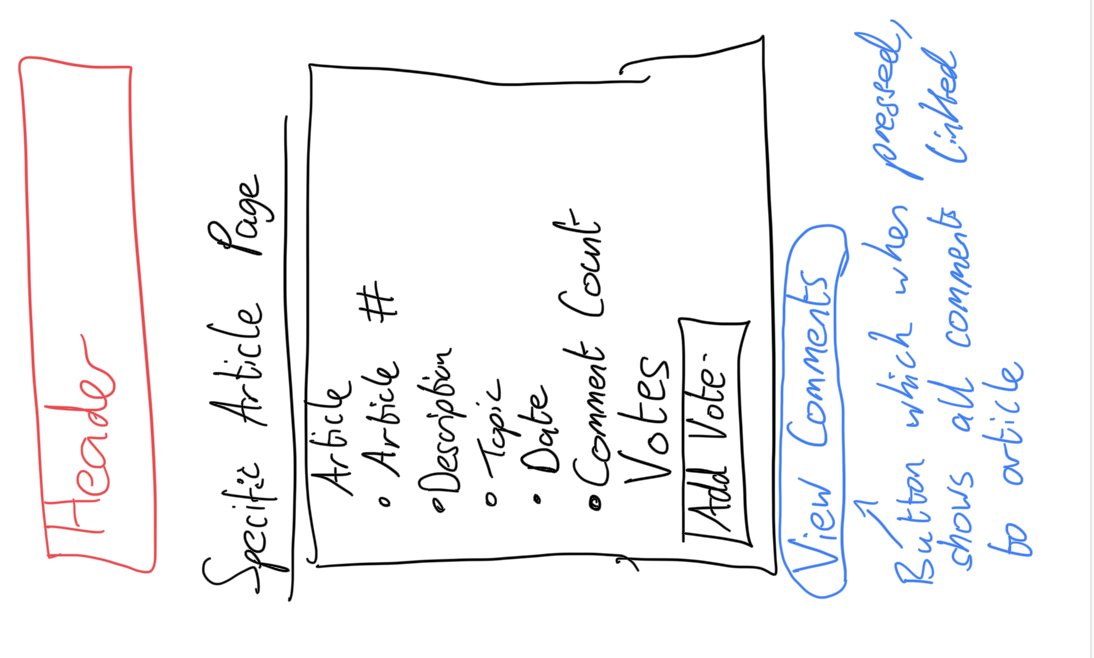 Header
Specific Article Page
Article
• Article #
• Description
• Topic
• Date
• Comment Count
Votes
Add Vote.
View Comments
Button which when pressed,
shows all comments linked
to article